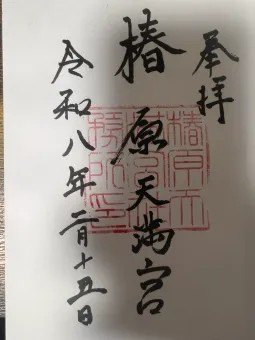 奉拝
椿原天満宮
令和八年二月十五日